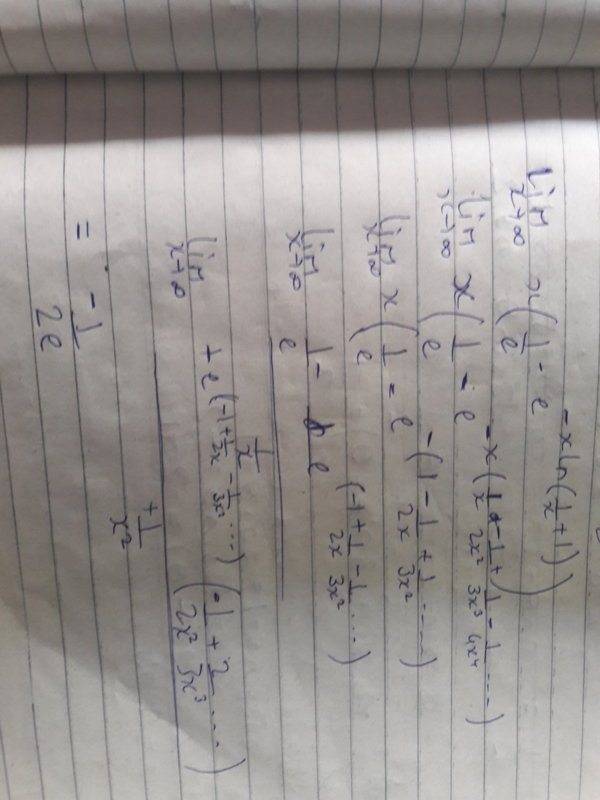 lim x→∞ x(1/e - e^(-x ln(1/x + 1)))
lim x→∞ x(1/e - e^(-x(1/x - 1/2x² + 1/3x³ - 1/4x⁴ ....)))
lim x→∞ x(1/e - e^(-(1 - 1/2x + 1/3x² ......)))
lim x→∞ x(1/e = e^(-1 + 1/2x - 1/3x² ...))
lim x→∞ (1/e - e^(-1 + 1/2x - 1/3x² ...)) / (1/x)
lim x→∞ + e^(-1 + 1/2x - 1/3x² ...) (-1/2x² + 2/3x³ ....) / (+1/x²)
= -1/2e